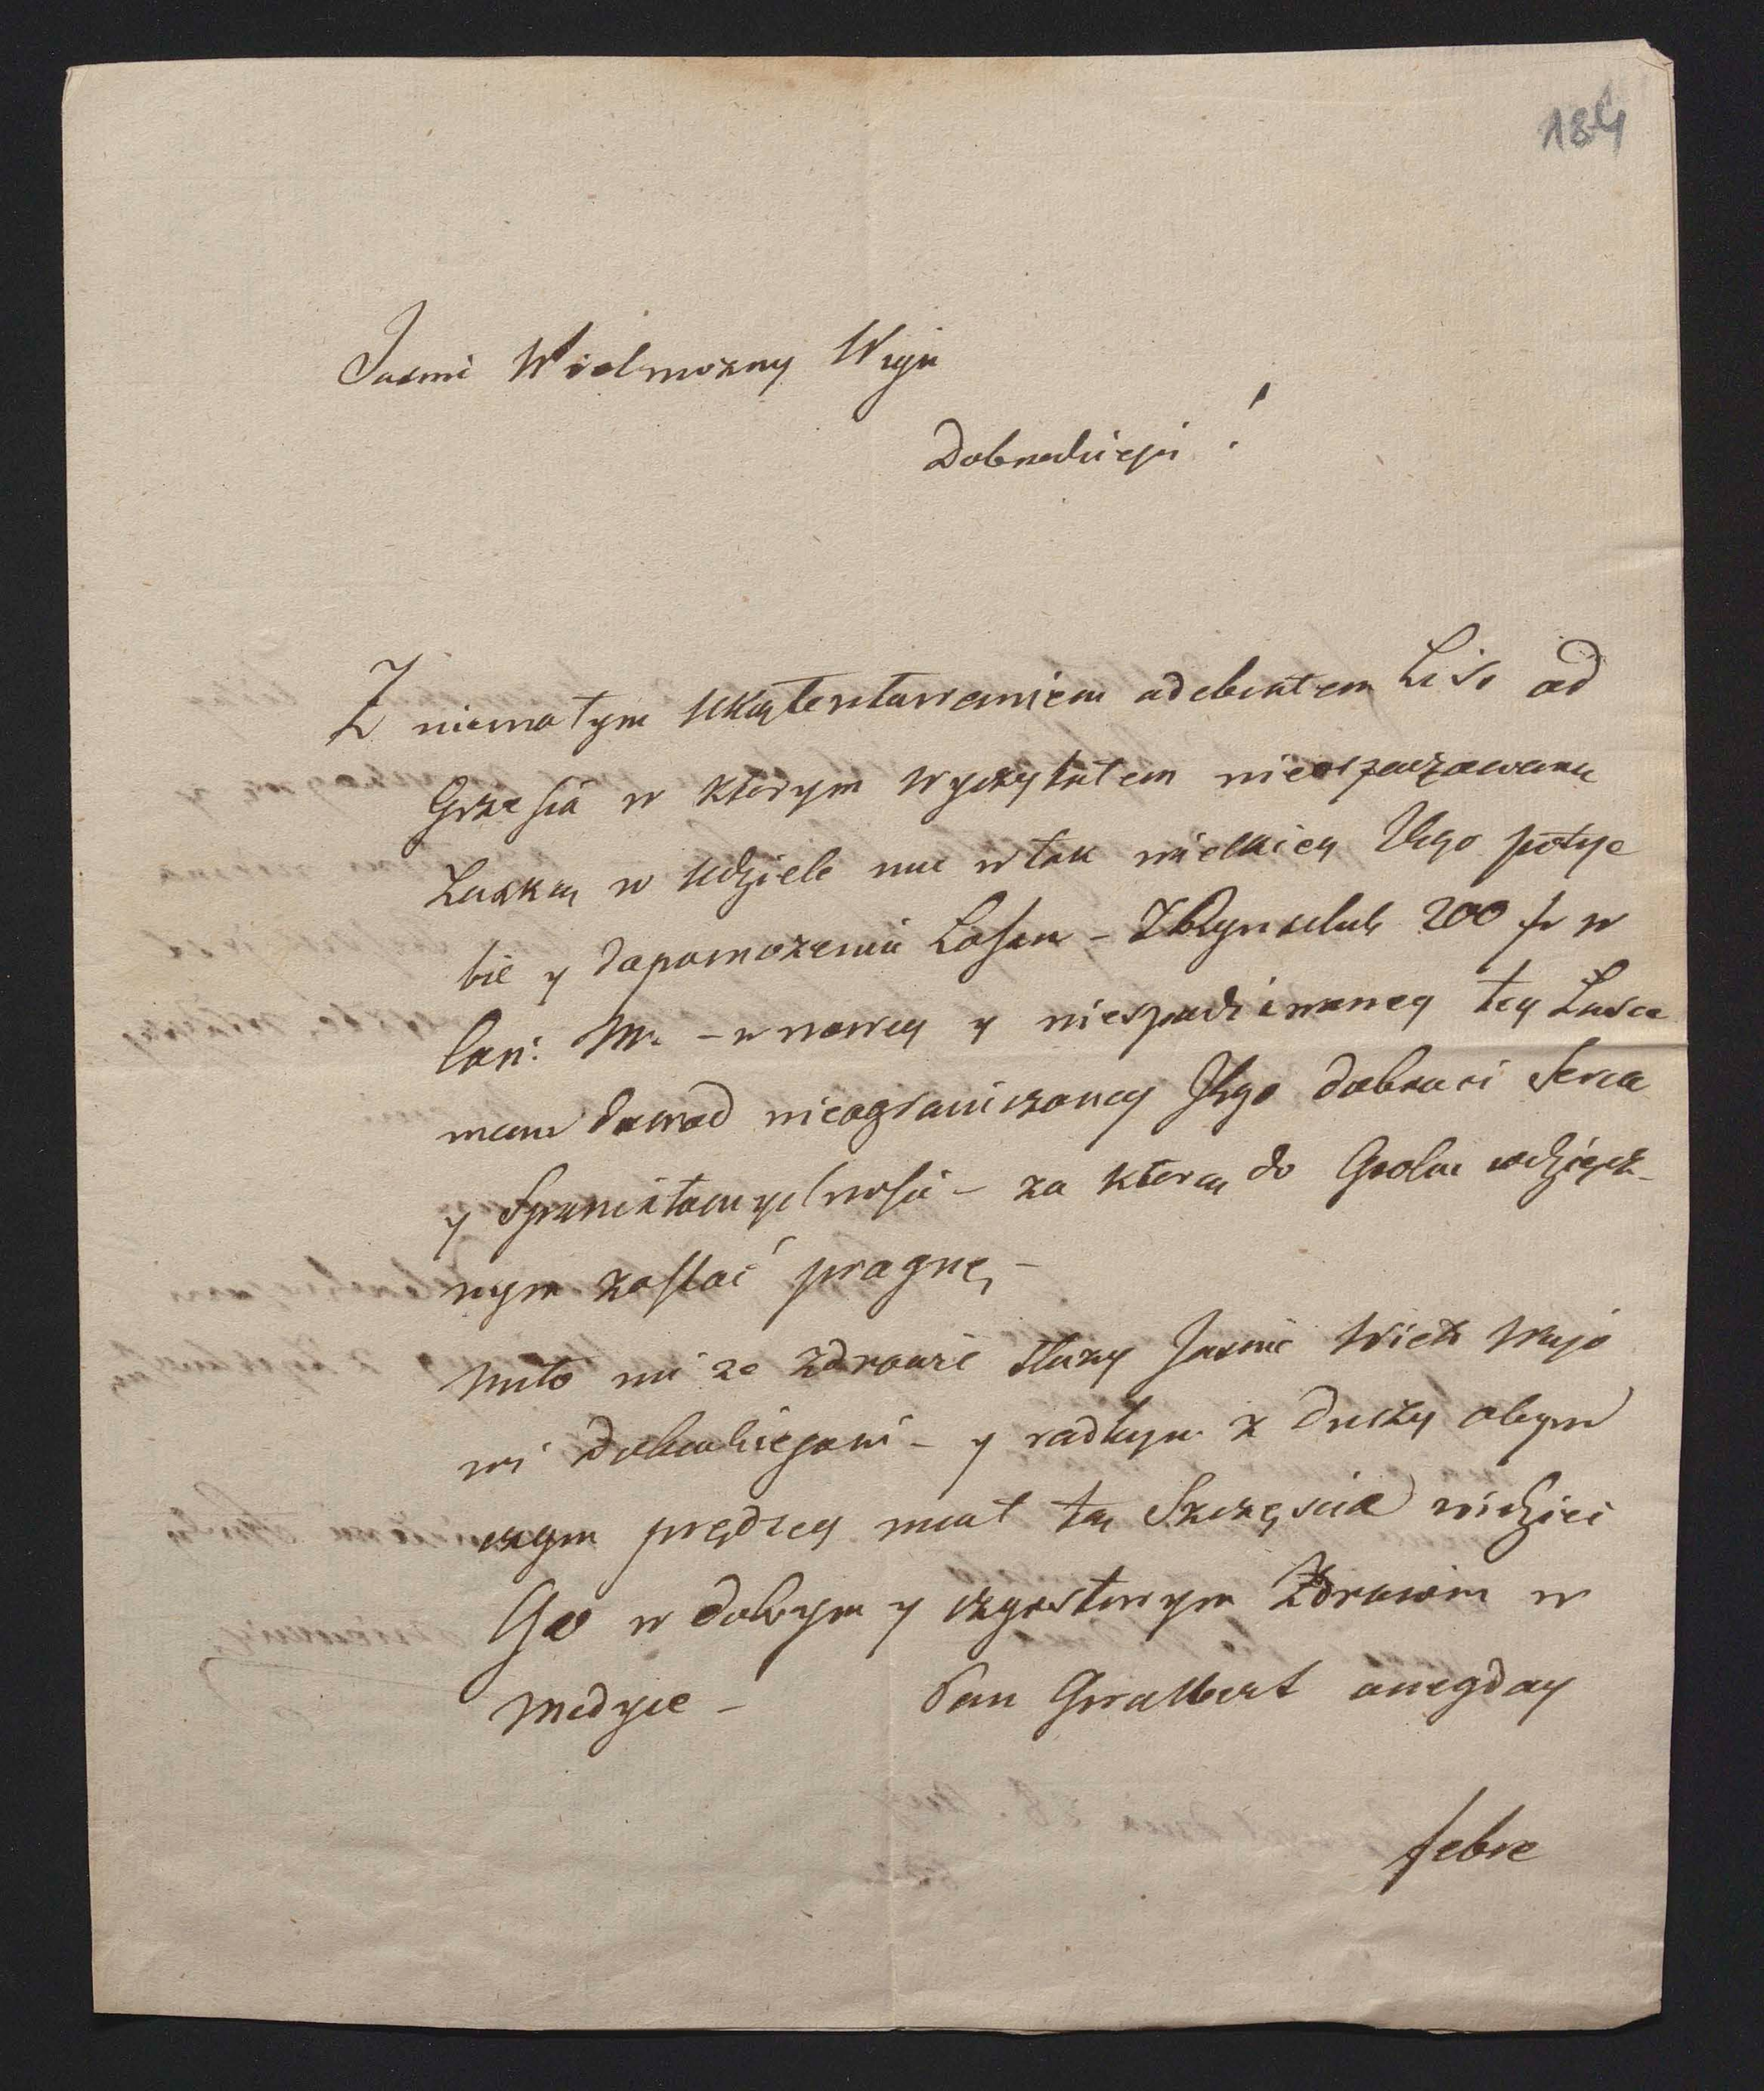 184
Jasnie Wielmozny Wuju
Dobrodzieju!
Z niemałym ukątentowaniem odebrałem List od
Grzesia w ktorym wyczytałem nieoszacowaną
Laskę w udziele mu w tak wielkiey Jego potrze
bie y dopomozenia Losem - 200 fr w
Con: M. - w nowey y niespodziewaney tey Lasce
mam dowod nieograniczoney Jego dobroci Serca
y Spaniałomyslnosci - za ktorą do Grobu wdzięcz-
nym zostać pragnę, -
Miło mi ze zdrowie słuzy Jasnie Wielm Wujo
wi Dobrodziejowi - y radbym z duszy abym
czym prędzey miał to Szczęscie widziec
Go w dobrym y czerstwym Zdrowiu w
Medyce - Pan Gwalbert onegday
febre